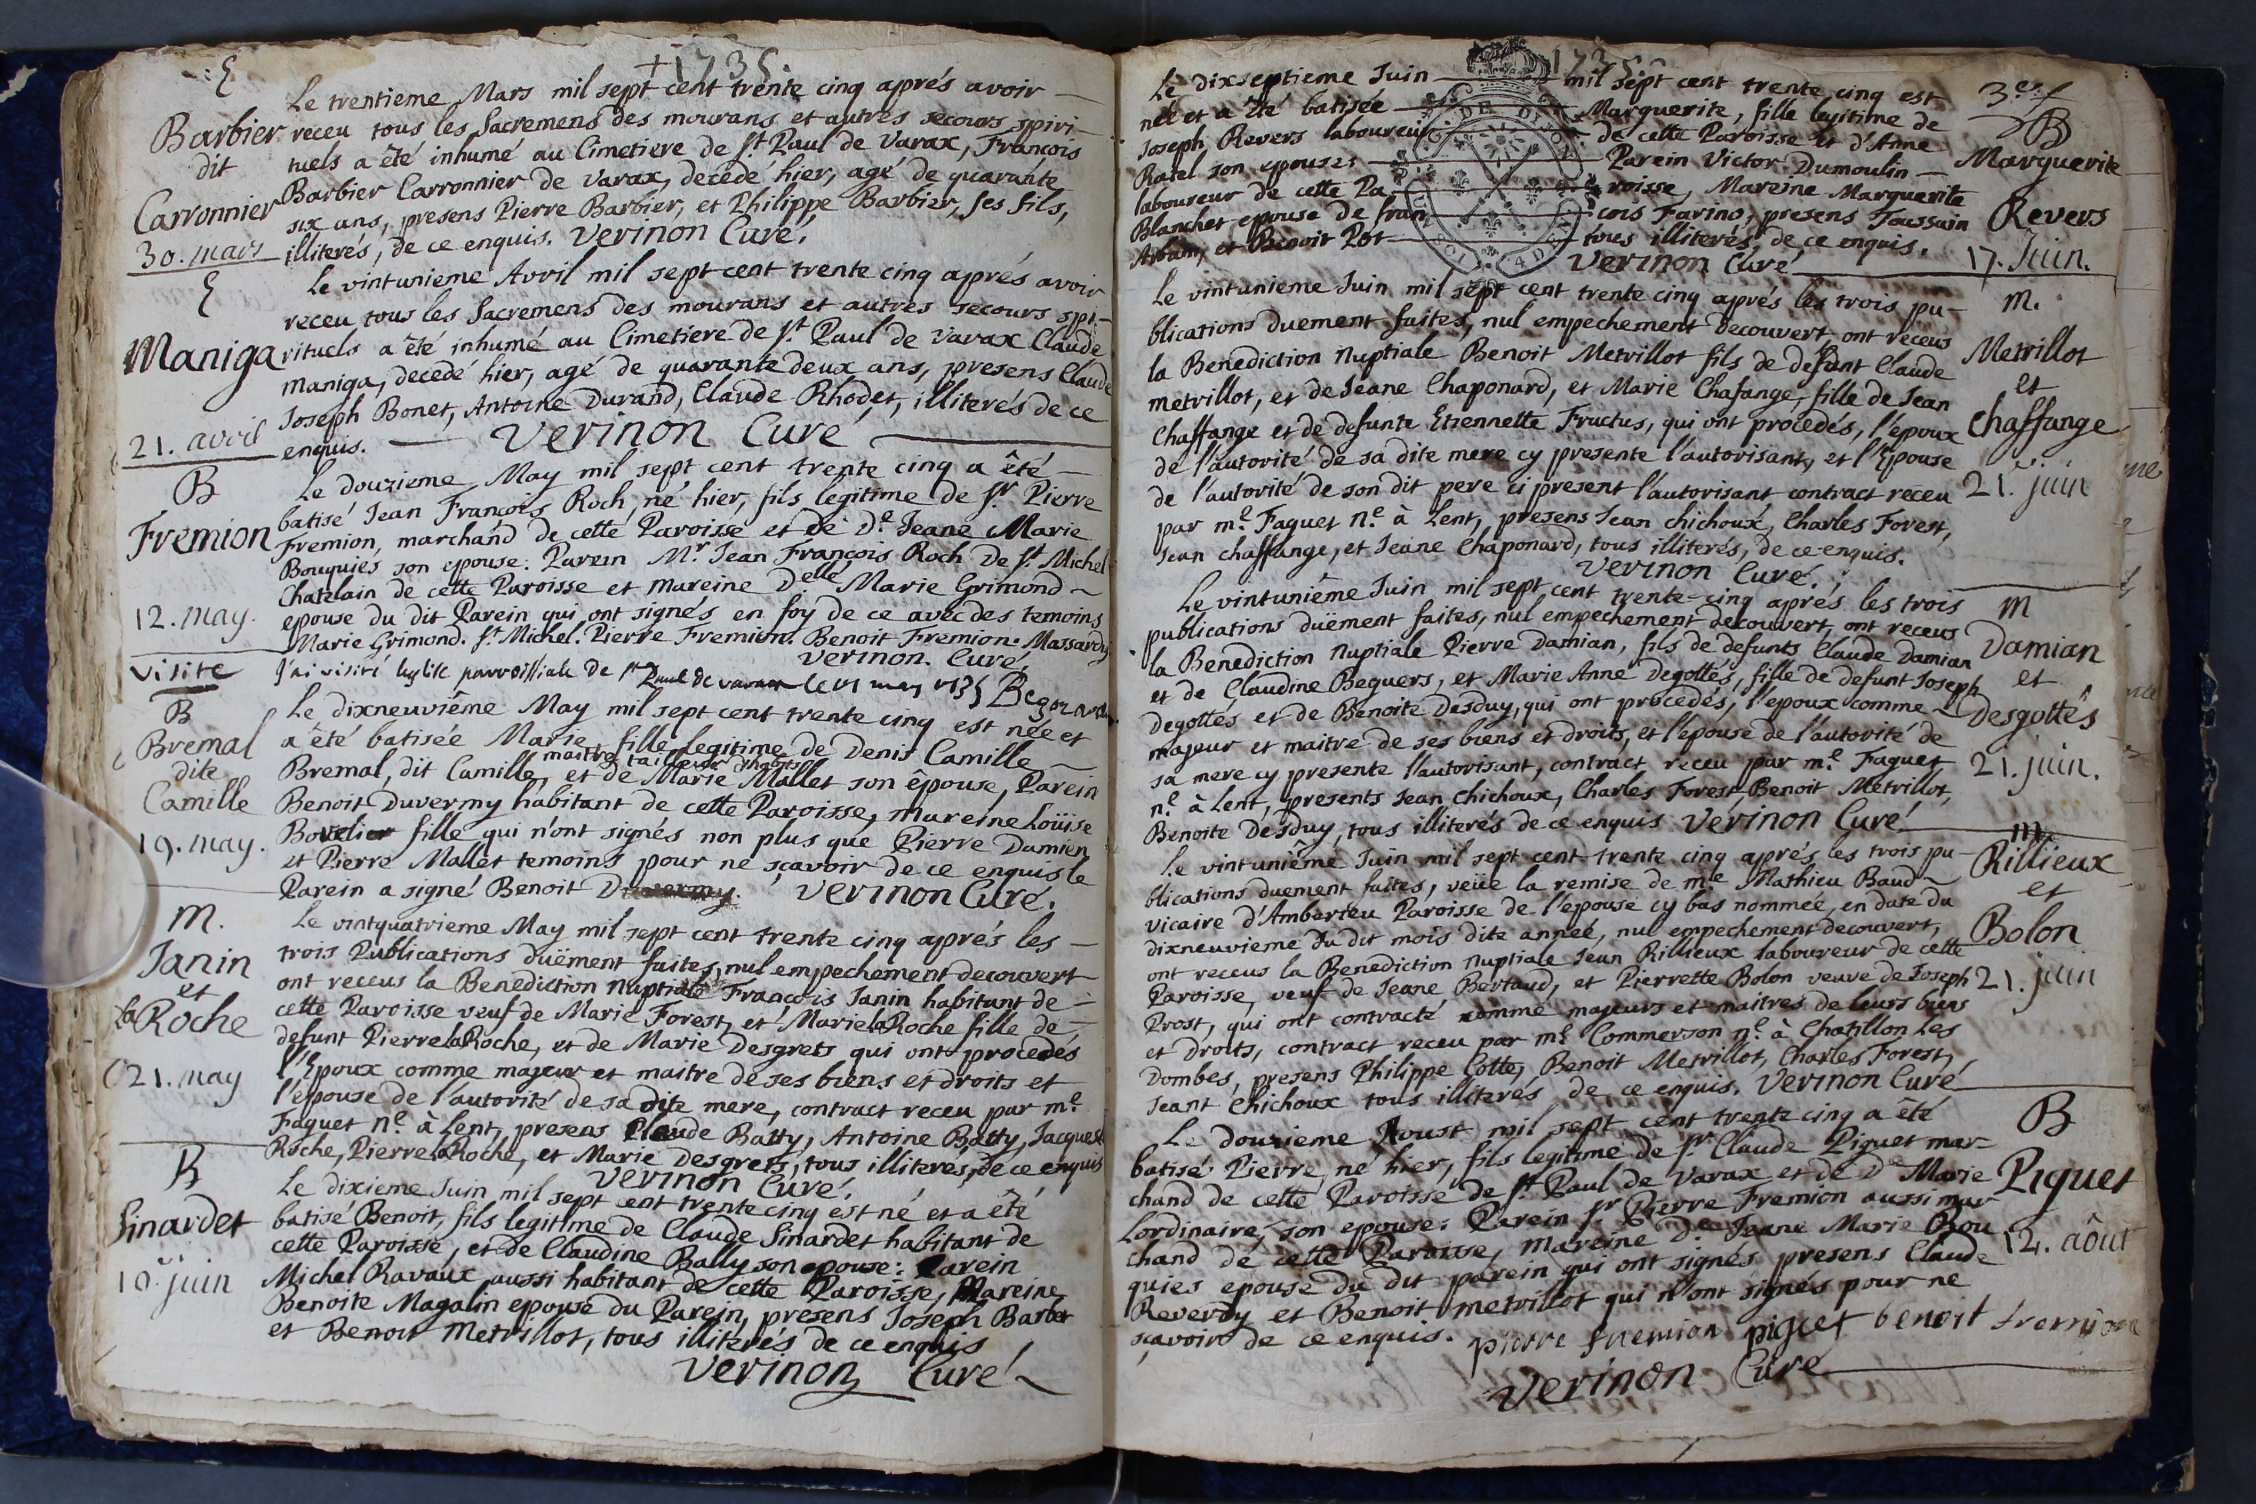 +1735
E
Barbier
dit
Carronnier
30. mars
Le trentieme Mars mil sept cent trente cinq aprés avoir
receu tous les Sacremens des mourans et autres secours spiri-
tuels a été inhumé au Cimetiere de St Paul de Varax, François
Barbier Carronnier de Varax, decédé hier, agé de quarante
six ans, presens Pierre Barbier, et Philippe Barbier, ses fils,
illiterés, de ce enquis. Verinon Curé.
E
Maniga
21. avril
Le vintunieme Avril mil sept cent trente cinq aprés avoir
receu tous les Sacremens des mourans et autres secours spi-
rituels a été inhumé au Cimetiere de St Paul de Varax Claude
Maniga, decedé hier, agé de quarante deux ans, presens Claude
Joseph Bonet, Antoine Durand, Claude Rhodet, illiterés de ce
enquis. Verinon Curé
B
Fremion
12. may.
Le douzieme May mil sept cent trente cinq a été
batisé Jean François Roch, né hier, fils legitime de Sr Pierre
Fremion, marchand de cette Paroisse et de De Jeane Marie
Bouquies son epouse. Parein Mr Jean François Roch De St Michel
Chatelain de cette Paroisse et mareine Delle Marie Grimond
epouse du dit Parein qui ont signés en foy de ce avec des temoins
Marie Grimond. St Michel. Pierre Fremion. Benoit Fremion. Massardy
Verinon. Curé.
Visite
J'ai visité leglise parroissiale de St Paul de varax le 17 may 1735
B
Bremal
dite
Camille
19. may.
Le dixneuviême May mil sept cent trente cinq est née et
a été batisée Marie fille legitime de Denis Camille
maitre tailleur d'habits
Bremal, dit Camille, et de Marie Mallet son êpouse, Parein
Benoit Duvermy habitant de cette Paroisse, mareine Loüise
Bovelier fille qui n'ont signés non plus que Pierre Damien
et Pierre Mallet temoins pour ne sçavoir de ce enquis le
Parein a signé Benoit Duvermy. Verinon Curé.
M.
Janin
et
la Roche
21. may
Le vintquatrieme May mil sept cent trente cinq aprés les
trois Publications duëment faites, nul empechement decouvert
ont receus la Benediction nuptiale François Janin habitant de
cette Paroisse veuf de Marie Forest, et Marie la Roche fille de
defunt Pierre la Roche, et de Marie Desgrets qui ont procedés
l'Epoux comme majeur et maitre de ses biens et droits et
l'epouse de l'autorité de sa dite mere, contract receu par me
Faguet ne à Lent, presens Claude Batty, Antoine Batty, Jacques la
Roche, Pierre la Roche, et Marie Desgrets, tous illiterés, de ce enquis
Verinon Curé.
B
Sinardet
10. juin
Le dixieme Juin mil sept cent trente cinq est né et a été
batisé Benoit, fils legitime de Claude Sinardet habitant de
cette Paroisse, et de Claudine Bally son epouse: Parein
Michel Ravaux aussi habitant de cette Paroisse, Mareine
Benoite Magalin epouse du Parein, presens Joseph Barbet
et Benoit Metrillot, tous illiterés de ce enquis
Verinon Curé
1735
3e f
B
Marguerite
Revers
17. Juin.
Le dixseptieme Juin mil sept cent trente cinq est
née et a été batisée Marguerite, fille legitime de
Joseph Revers laboureur de cette Paroisse et d'Anne
Ratel son epouse: Parein Victor Dumoulin
laboureur de cette Pa roisse, Mareine Marguerite
Blanchet epouse de Fran çois Farino, presens Toussain
Arbain, et Benoit Pot tous illiterés, de ce enquis.
Verinon Curé
G. DE DIJON
m.
Metrillot
et
Chaffange
21. juin
Le vintunieme Juin mil sept cent trente cinq aprés les trois pu-
blications duement faites, nul empechement decouvert, ont receus
la Benediction nuptiale Benoit Metrillot fils de defunt Claude
metrillot, et de Jeane Chaponard, et Marie Chafange, fille de Jean
Chaffange et de defunte Etiennette Fructus, qui ont procedés, l'epoux
de l'autorité de sa dite mere cy presente l'autorisant, et l'Epouse
de l'autorité de son dit pere ci present l'autorisant, contract receu
par me Faguet ne à Lent, presens Jean chichoux, Charles Forest,
Jean chaffange, et Jeane Chaponard, tous illiterés, de ce enquis.
Verinon Curé.
m
Damian
et
Desgottes
21. juin.
Le vintuniême Juin mil sept cent trente-cinq aprés les trois
publications duëment faites, nul empechement decouvert, ont receus
la Benediction nuptiale Pierre Damian, fils de defunts Claude Damian
et de Claudine Beguers, et Marie Anne Degottes, fille de defunt Joseph
Degottes et de Benoite Desduy, qui ont procedés, l'epoux comme
majeur et maitre de ses biens et droits, et l'epouse de l'autorité de
sa mere cy presente l'autorisant, contract receu par me Faguet
ne à Lent, presents Jean chichoux, Charles Forest, Benoit Metrillot,
Benoite Desduy, tous illiterés de ce enquis Verinon Curé.
m.
Rillieux
et
Bolon
21. juin
Le vintuniême Juin mil sept cent trente cinq aprés les trois pu-
blications duement faites, veüe la remise de mre Mathieu Baud
vicaire d'Amberieu Paroisse de l'epouse cy bas nommée, en date du
dixneuvieme du dit mois dite année, nul empechement decouvert,
ont receus la Benediction nuptiale Jean Rillieux laboureur de cette
Paroisse, veuf de Jeane Bertaud, et Pierrette Bolon veuve de Joseph
Prost, qui ont contracté comme majeurs et maitres de leurs biens
et Droits, contract receu par me Commerson ne à Chatillon Les
Dombes, presens Philippe Cotte, Benoit Metrillot, Charles Forest,
Jeant Chichoux tous illiterés de ce enquis. Verinon Curé
B
Piguet
12. août
Le douzieme Aoust mil sept cent trente cinq a été
batisé Pierre, né hier, fils legitime de Sr Claude Piguet mar-
chand de cette Paroisse de St Paul de Varax et de De Marie
Lordinaire, son epouse: Parein Sr Pierre Fremion aussi mar
chand de cette Paroisse, mareine De Jeane Marie Bou
quies epouse du dit parein qui ont signés presens Claude
Reverdy et Benoit metrillot qui n'ont signés pour ne
sçavoir de ce enquis. pierre fremion piguet benoit fremion
Verinon Curé